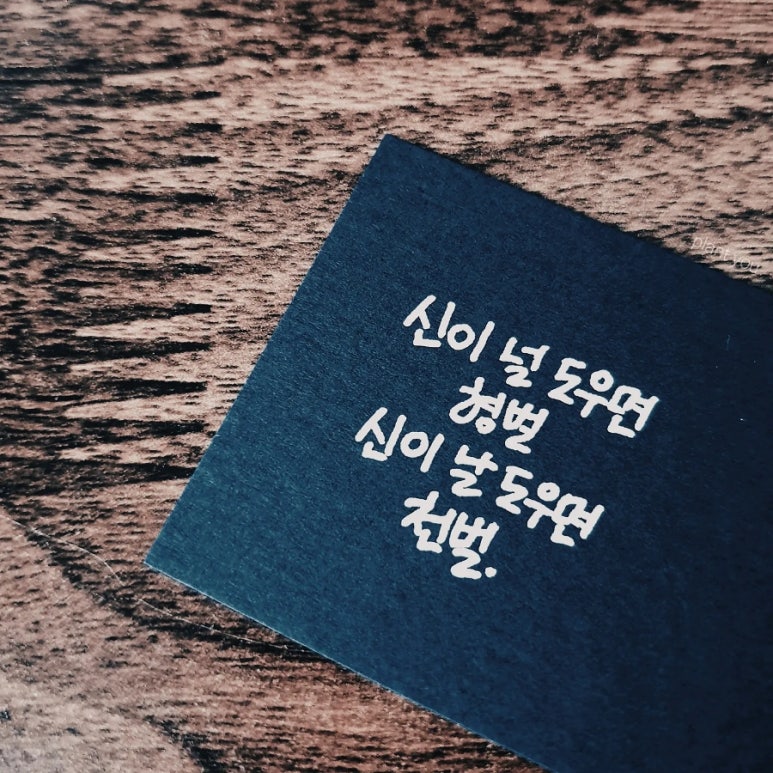 신이 널 도우면
형벌
신이 날 도우면
천벌.
plantyou